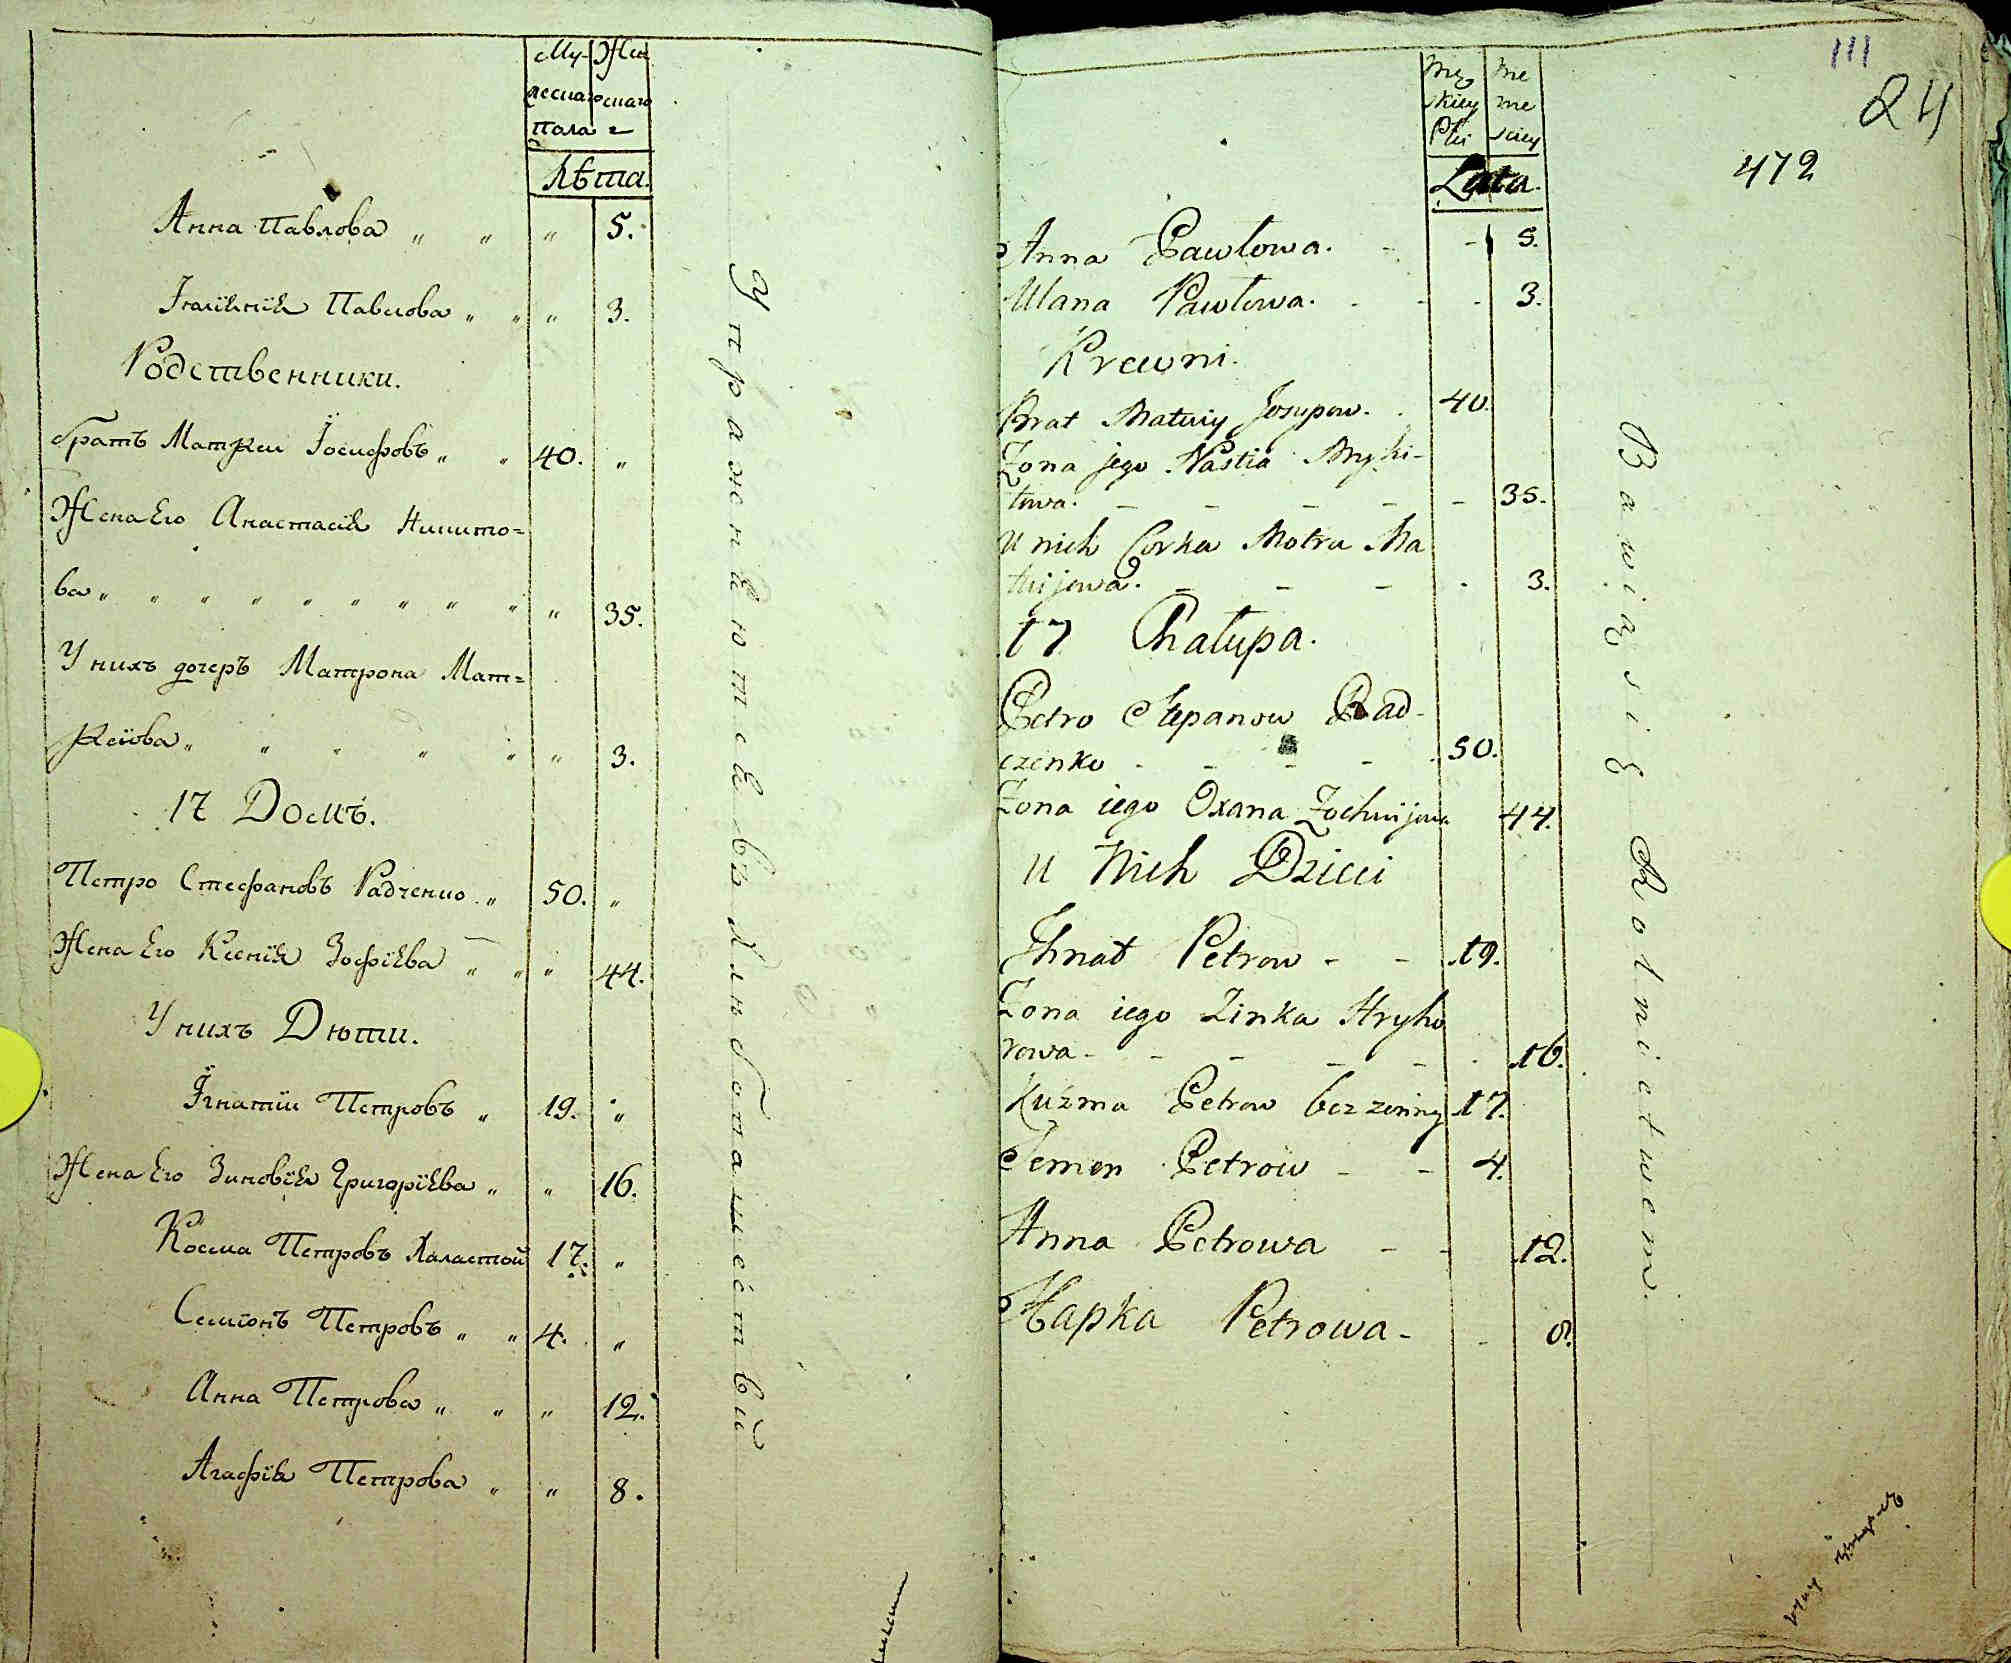 Мужескаго Женскаго
Пола
Лѣта.
Анна Павлова 5.
Іулианія Павлова 3.
Родственники.
братъ Матфеи Іосифовъ 40.
Жена Его Анастасія Никито=
ва 35.
У нихъ дочеръ Матрона Мат=
феіова 3.
17 Домъ.
Петро Стефановъ Радченко 50.
Жена Его Ксенія Зофіева 44.
У нихъ Дюти.
Ігнатіи Петровъ 19.
Жена Его Зиновія Григоріева 16.
Косма Петровъ Халастой 17.
Семіонъ Петровъ 4.
Анна Петрова 12.
Агафія Петрова 8.
Упражняются въ хлѣбопашествѣ
111
24
472
Lata.
Anna Pawłowa. 5.
Ulana Pawłowa. 3.
Krewni.
Brat Matwiy Josypow. 40.
Zona jego Nastia Myki-
towa. 35.
U nich Corka Motra Ma
twijowa. 3.
17 Chałupa.
Petro Stepanow Rad-
czenko 50.
Zona iego Oxana Zochwijowa 44.
U Nich Dzieci
Ihnat Petrow 19.
Zona iego Zinka Hryho
rowa 16.
Kuźma Petrow bezzenny 17.
Semen Petrow 4.
Anna Petrowa 12.
Hapka Petrowa 8.
Bawią się Rolnictwem.